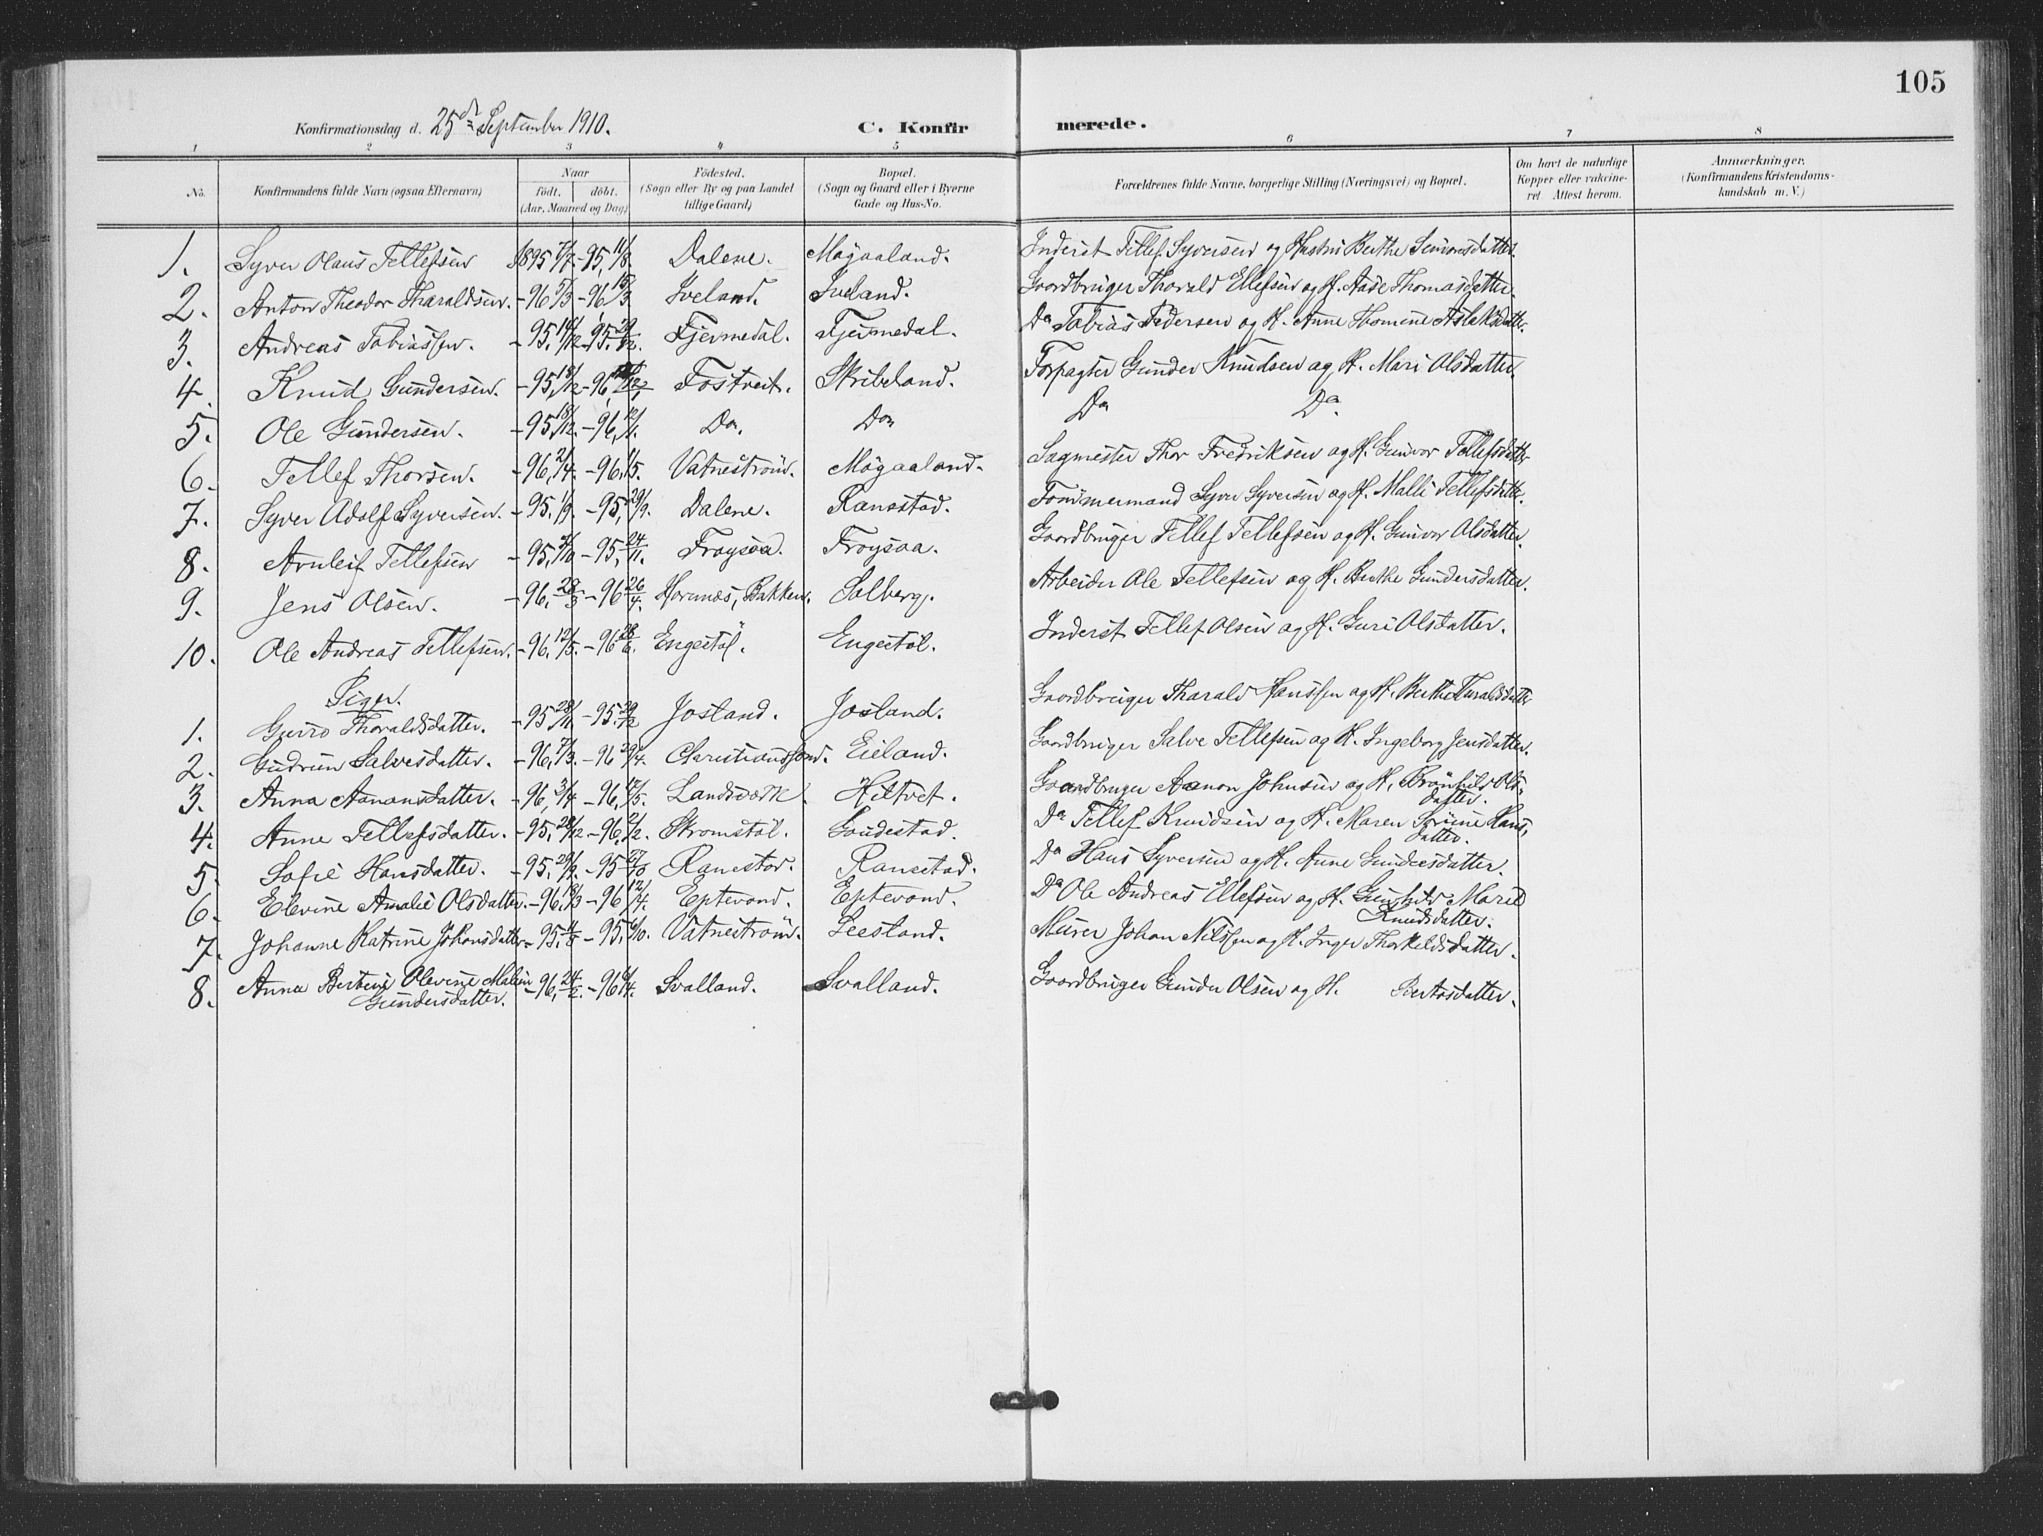 105
Konfirmationsdag d. 25de September 1910.
C. Konfirmerede.
1 2 3 4 5 6 7 8
No.
Konfirmandens fulde Navn (ogsaa Efternavn)
Naar
født. døbt.
(Aar, Maaned og Dag)
Fødested.
(Sogn eller By og paa Landet
tillige Gaard)
Bopæl.
(Sogn og Gaard eller i Byerne
Gade og Hus-No.
Forældrenes fulde Navne, borgerlige Stilling (Næringsvei) og Bopæl.
Om havt de naturlige
Kopper eller vakcine-
ret Attest herom.
Anmærkninger.
(Konfirmandens Kristendoms-
kundskab m. V.)
1. Syver Olaus Tellefsen 1895 7/7 -95, 11/8 Dalene. Møgaaland. Inderst Tellef Syversen og Hustru Berthe Simonsdatter.
2. Anton Theodor Tharaldsen. -96 5/3 -96, 15/3 Iveland. Iveland. Gaardbruger Tharald Ellefsen og H. Aase Thomasdatter.
3. Andreas Tobiassen. -95, 14/12 -95, 29/12 Fjermedal. Fjermedal. Do Tobias Pedersen og H. Anne Thomine Aslaksdatter.
4. Knud Gundersen. -95, 18/12 -96, Fostveit. Skribeland. Forpagter Gunder Knudsen og H. Mari Olsdatter.
5. Ole Gundersen. -95, 18/12. -96, 12/1. Do. Do Do Do.
6. Tellef Thorsen. -96, 2/4. -96, 1/5. Vatnestrøm. Møgaaland. Sagmester Thor Fredriksen og H. Gunvor Tellefsdatter
7. Syver Adolf Syversen. -95. 1/9. -95, 29/9. Dalene. Ranestad. Tømmermand Syver Syversen og H. Malli Tellefsdatter.
8. Arnleif Tellefsen -95, /10 -95, 24/11. Frøysaa. Frøysaa. Gaardbruger Tellef Tellefsen og H. Gunvor Olsdatter.
9. Jens Olsen. -96, 28/3 -96 26/4. Hornnes, Bakken. Solberg. Arbeider Ole Tellefsen og H. Berthe Gundersdatter.
10. Ole Andreas Tellefsen. -96, 12/5. -96 28/6. Engestøl. Engestøl. Inderst Tellef Olsen og H. Guri Olsdatter.
Piger.
1. Gurro Tharaldsdatter. -95 28/11 -95. 29/12 Josland. Josland. Gaardbruger Tharald Hanssen og H. Berthe Tharaldsdatter
2. Gudrun Salvesdatter. -96, 7/3. -96 29/4. Christianssand. Eieland. Gaardbruger Salve Tellefsen og H. Ingeborg Jensdatter.
3. Anna Aanonsdatter. -96, 3/4 -96, 17/5. Landsværk. Hiltvet. Gaardbruger Aanon Johnsen og H. Brønhild Ols-
datter.
4. Anne Tellefsdatter. -95, 28/12 -96. 2/2. Strømstøl. Gaudestad. Do Tellef Knudsen og H. Maren Serine Hans-
datter.
5. Sofie Hansdatter. -95. 29/9. -95 27/10 Ranestad. Ranestad. Do Hans Syversen og H. Anne Gundersdatter.
6. Elevine Amalie Olsdatter. -96, 18/3 -96 12/4. Eptevand. Eptevand. Do Ole Andreas Ellefsen og H. Gunhild Marie
Knudsdatter.
7. Johanne Katrine Johansdatter -95, 11/8 -95, 6/10. Vatnestrøm. Leesland. Murer Johan Nilssen og H. Inger Thorkeldsdatter.
8. Anna Bertine Olevine Malene -96, 24/2. -96 6/4. Svalland. Svalland. Gaardbruger Gunder Olsen og H. Bertosdatter.
Gundersdatter.